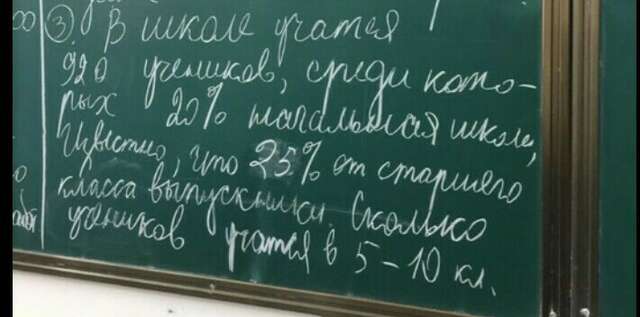 ③ В школе учатся
920 учеников, среди кото-
рых 20% начальная школа,
Известно, что 25% от старшего
класса выпускники. Сколько
учеников учатся в 5-10 кл.